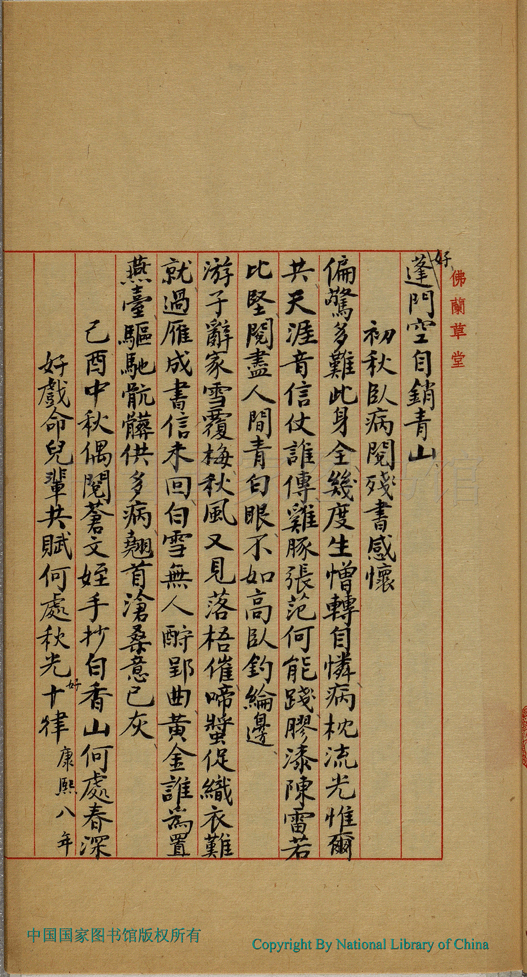 佛蘭草堂
好
蓬門空自銷青山
初秋臥病閱殘書感懷
偏驚多難此身全幾度生憎轉自憐病枕流光惟爾
共天涯音信仗誰傳雞豚張范何能踐膠漆陳雷若
比堅閱盡人間青白眼不如高臥釣綸邊
游子辭家雪覆梅秋風又見落梧催啼螿促織衣難
就過雁成書信未回白雪無人酧郢曲黃金誰為置
燕臺驅馳骯髒供多病翹首滄桑意已灰
己酉中秋偶閱蒼文姪手抄白香山何處春深
好戲命兒輩共賦何處秋光十律康熙八年
好
中国国家图书馆版权所有
Copyright By National Library of China